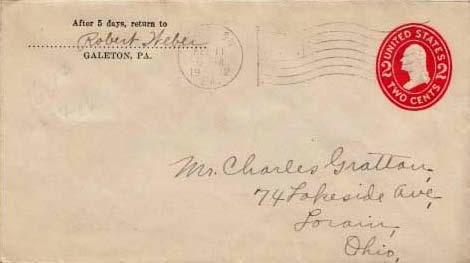 After 5 days, return to
Robert Weber
GALETON, PA.
11
19 2
UNITED STATES
2 2
TWO CENTS
Mr. Charles Gratton,
74 Lakeside Ave,
Lorain,
Ohio,